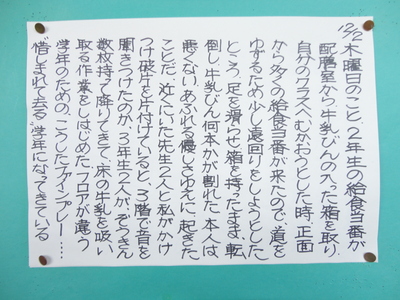 12/2木曜日のこと、2年生の給食当番が
配膳室から、牛乳びんの入った箱を取り、
自分のクラスへむかおうとした時、正面
から多くの給食当番が来たので、道を
ゆずるため少し遠回りをしようとした
ところ、足を滑らせ、箱を持ったまま、転
倒し、牛乳びん何本かが割れた。本人は
悪くない。あふれる優しさゆえに、起きた
ことだ。近くにいた先生2人と私がかけ
つけ破片を片付けていると、3階で音を
聞きつけたのか、3年生2人が、ぞうきん
数枚持って降りてきて、床の牛乳を吸い
取る作業をしはじめた。フロアが違う
学年のための、こうしたファインプレー…。
“惜しまれて去る”学年になってきている